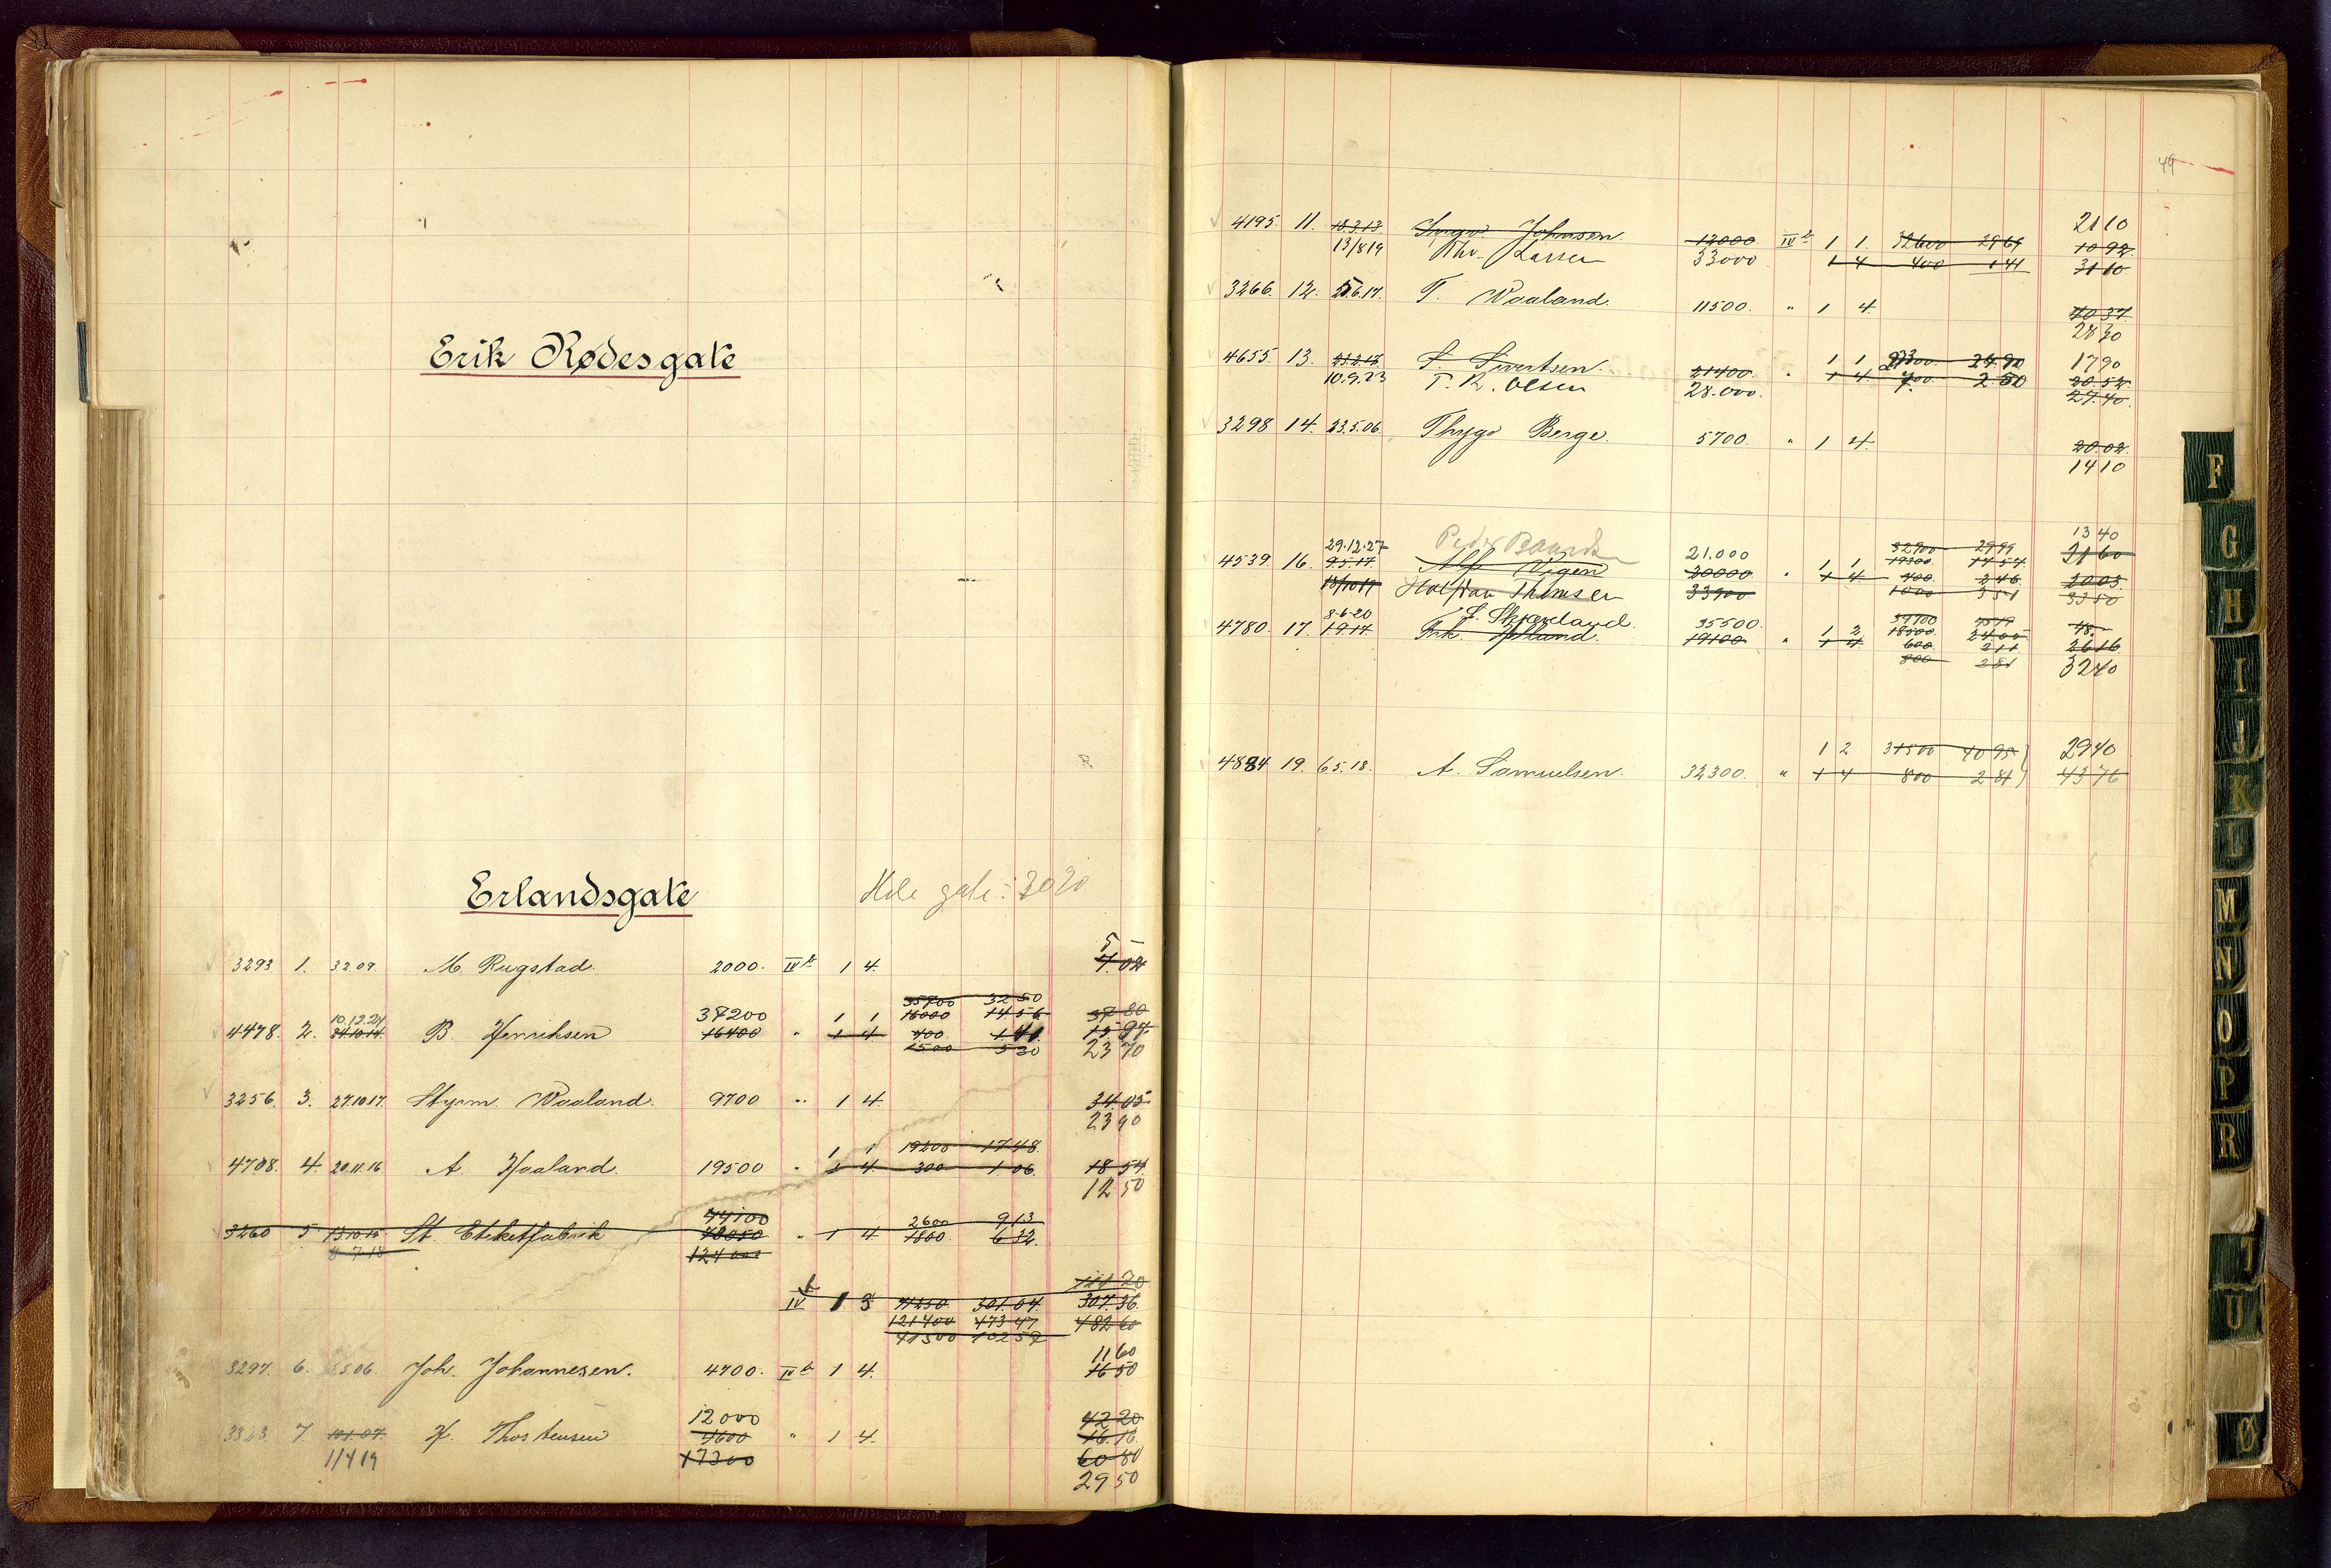 Erik Rødesgate
Erlandsgate
Hele gate: 3020
5 –
3293 1. 3.2.09. M. Rugstad. 2000. IV b 1 4. 7.02
35700 3250
10.12.24 37200 1 1 16000 14.56 37 80
4478. 2. 24.10.14 B. Henriksen 16400 " 1 4 400 1 41 15.97
1500 530 23 70
3256. 3. 27.10.17. Styrm. Waaland. 9700 " 1 4. 34.05
23 90
1 1 19200 17.48
4708. 4. 20.11.16 A. Haaland. 19500 " 1 4 300 1.06 18 54
12 50
44100 2600 913
3260 5 13.10.15 St. Etiketfabrik 78050 " 1 4 1800 632.
124000
111 20
IV b 1 3 301.04. 307.36
121400 473 47 482 60
41500 102 57
11 60
3297. 6. 5.06. Joh. Johannesen. 4700. IV b 1 4. 16 50
12000 42 20
3323. 7 10.1.07. H. Thorstensen 4600 " 1 4. 16.16
11 4 19 17300 60 80
29 50
49
21 10
4195. 11. 18.3.13 Johnsen. 12000 IV b 1 1. 32600 29 69 10 92
13/8 19 Larsen 33000 1 4 400 1 41 31 10
3266. 12. 21.6.17. T. Waaland. 11500. " 1 4. 40 37
28 30
4655. 13. 23.2.17 S. Sivertsen. 21400. " 1 1 27300 24.90 17 90
10.9.23 T. K. Olsen 28.000. 1 4 700. 2 50 20.52
27.40
3298 14. 23.5.06. Thygo Berge. 5700. " 1 4. 20 02
14 10
29.12.27 Peder 21.000 32900 29 99 13 40
4539 16. 9.5.17 Alf Vigen 20000 " 1 1 19300 17 57 21 60
13/10 19 Halfdan Thomsen 33900 1 4 700. 2 46. 20 03.
1000 351 33 50
8-6-20 S. Skjæveland. 35500. 34700
4780. 17. 1.9.17 19100 " 1 2 18500 24.05 48.–
1 4 600. 211 26 16
800 281 32 40
1 2 31500 40 95 29 40
4884 19. 6 5.18. A. Samuelsen. 32300. " 1 4 800 2 81 43 76
F
G
H
I
J
K
L
M
N
O
P
R
T
U
Ø